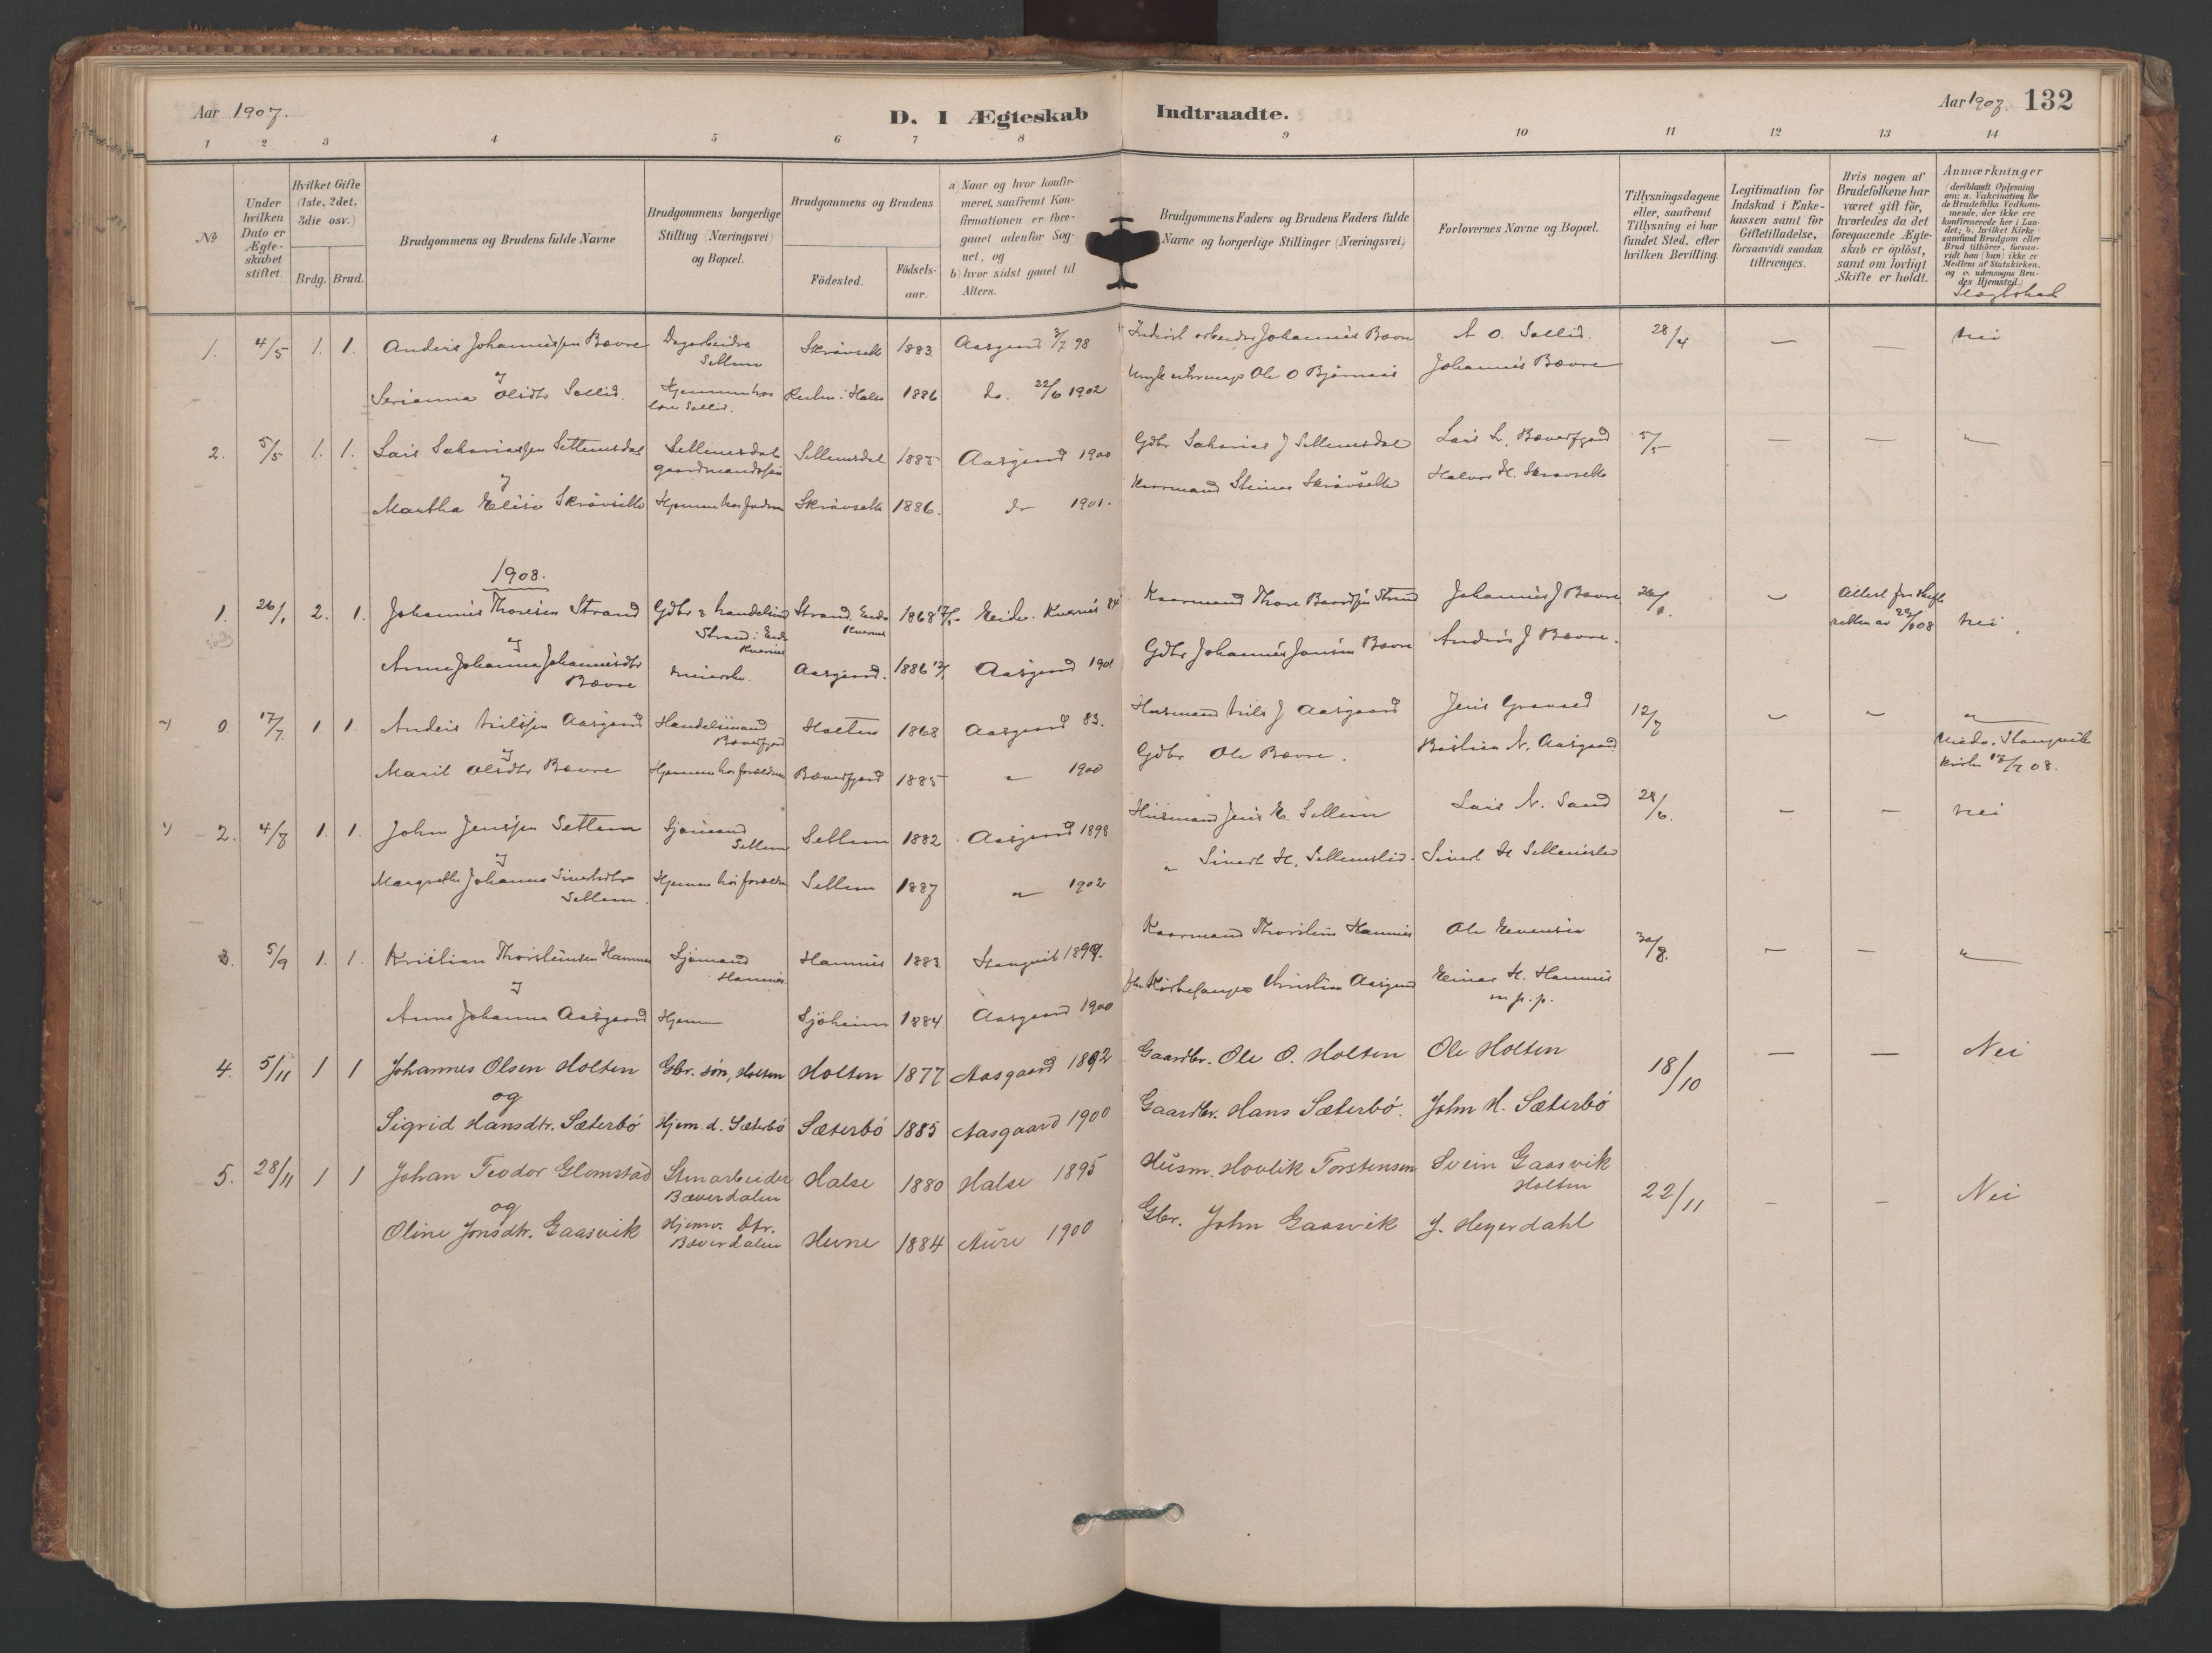 Aar 1907.
D. I Ægteskab Indtraadte.
Aar 1907. 132
1 2 3 4 5 6 7 8 9 10 11 12 13 14
No
Under hvilken Dato er Ægteskabet stiftet.
Hvilket Gifte (1ste, 2det, 3die osv.)
Brdg. Brud.
Brudgommens og Brudens fulde Navne
Brudgommens borgerlige Stilling (Næringsvei) og Bopæl.
Brudgommens og Brudens
Födested. Födselsaar.
a) Naar og hvor konfirmeret, saafremt Konfirmationen er foregaaet udenfor Sognet, og
b) hvor sidst gaaet til Alters.
Brudgommens Faders og Brudens Faders fulde Navne og borgerlige Stillinger (Næringsvei)
Forlovernes Navne og Bopæl.
Tillysningsdagene eller, saafremt Tillysning ei har fundet Sted, efter hvilken Bevilling.
Legitimation for Indskud i Enkekassen samt for Giftetilladelse, forsaavidt saadan tiltrænges.
Hvis nogen af Brudefolkene har været gift för, hvorledes da det foregaaende Ægteskab er oplöst, samt om lovligt Skifte er holdt.
Anmærkninger
(deriblandt Oplysning om: a. Vakcination for de Brudefolks Vedkommende, der ikke ere konfirmerede her i Landet; b. hvilket Kirkesamfund Brudgom eller Brud tilhörer, forsaavidt han (hun) ikke er Medlem af Statskirken, og c. udensogns Brudes Hjemsted.)
Slægtskab
1. 4/5 1. 1. Anders Johannessen Bævre Dagarbeider Settem Skråvsett 1883. Aasgaard 3/7 98 arbeider Johannes Bævre A O. Sollid. 28/4 — — nei
og Johannes Bævre
Serianna Olsdtr Sollid. Halse 1886 do. 22/6 1902 Ole O Bjørnaas
2. 5/5 1. 1. Lars Sakariassen Settemsdal Settemsdal gaardmandssøn Settemsdal 1885 Aasgaard 1900 Gdbr Sakarias J Settemsdal Lars L. Bæverfjord 5/5 — — "
og
Martha Elise Skråvsett Hjemme hos faderen Skråvsett 1886. do 1901. Kaarmand Steiner Skråvsett Halvor H. Skråvsett
1908.
1. 26/1 2. 1. Johannes Thoresen Strand Gdbr & handelsmd Strand i Eide Kvernes Strand Eide Kvernes 1868 Eide. Kvernes 84 Kaarmand Thore Baardsen Strand Johannes J Bævre 26/1. — Attest fra skifteretten av 22/1 08 nei
og
Anne Johanna Johannesdtr Bævre meierske. Aasgaard. 1886 Aasgaard 1901 Gdbr Johannes Jonsen Bævre Anders J Bævre.
0. 17/7. 1. 1. Anders Nilssen Aasgaard Handelsmand Bæverfjord Holten 1868 Aasgaard 83. Husmand Nils J Aasgaard Jens Gravald 12/7 — — "
og
Marit Olsdtr Bævre Hjemme hos forældrene Bæverfjord 1885 " 1900 Gdbr Ole Bævre. Bastian N. Aasgaard Viede i Stangvik kirke 17/7 08.
2. 4/7 1. 1. John Jenssen Settem Sjømand Settem Settem 1882 Aasgaard 1898 Husmand Jens E. Settem Lars N. Sand 28/6. — — nei
og
Margrethe Johanna Sivertsdtr Settem. Hjemme hos forældre Settem 1887 " 1902 " Sivert H. Settemslid. Sivert H Settemslid
3. 5/9 1. 1. Kristian Thorsteinsen Hamnes Sjømand Hamnes. Hamnes 1883 Stangvik 1899. Kaarmand Thorstein Hamnes Ole Evensen 30/8. — — "
og
Anne Johanna Aasgaard Hjemme Sjöheim 1884 Aasgaard 1900 Kirkesanger Christian Aasgaard Einar H. Hamnes m. p. p.
4. 5/11 1 1 Johannes Olsen Holten Gbr. søn, Holten Holten 1877 Aasgaard 1892 Gaardbr. Ole O. Holten Ole Holten 18/10 — — Nei
og
Sigrid Hansdtr. Sæterbö Hjem. d. Sæterbö Sæterbö 1885 Aasgaard 1900 Gaardbr. Hans Sæterbö. John H. Sæterbö
5. 28/11 1 1 Johan Teodor Glomstad Stenarbeider Bæverdalen Halse 1880 Halse 1895 Husm. Hovlik Torstensen Svein Gaasvik Holten 22/11 — — Nei
og
Oline Jonsdtr. Gaasvik Hjemv. Dtr. Bæverdalen Hevne 1884 Aure 1900 Gbr. John Gaasvik J. Heyerdahl